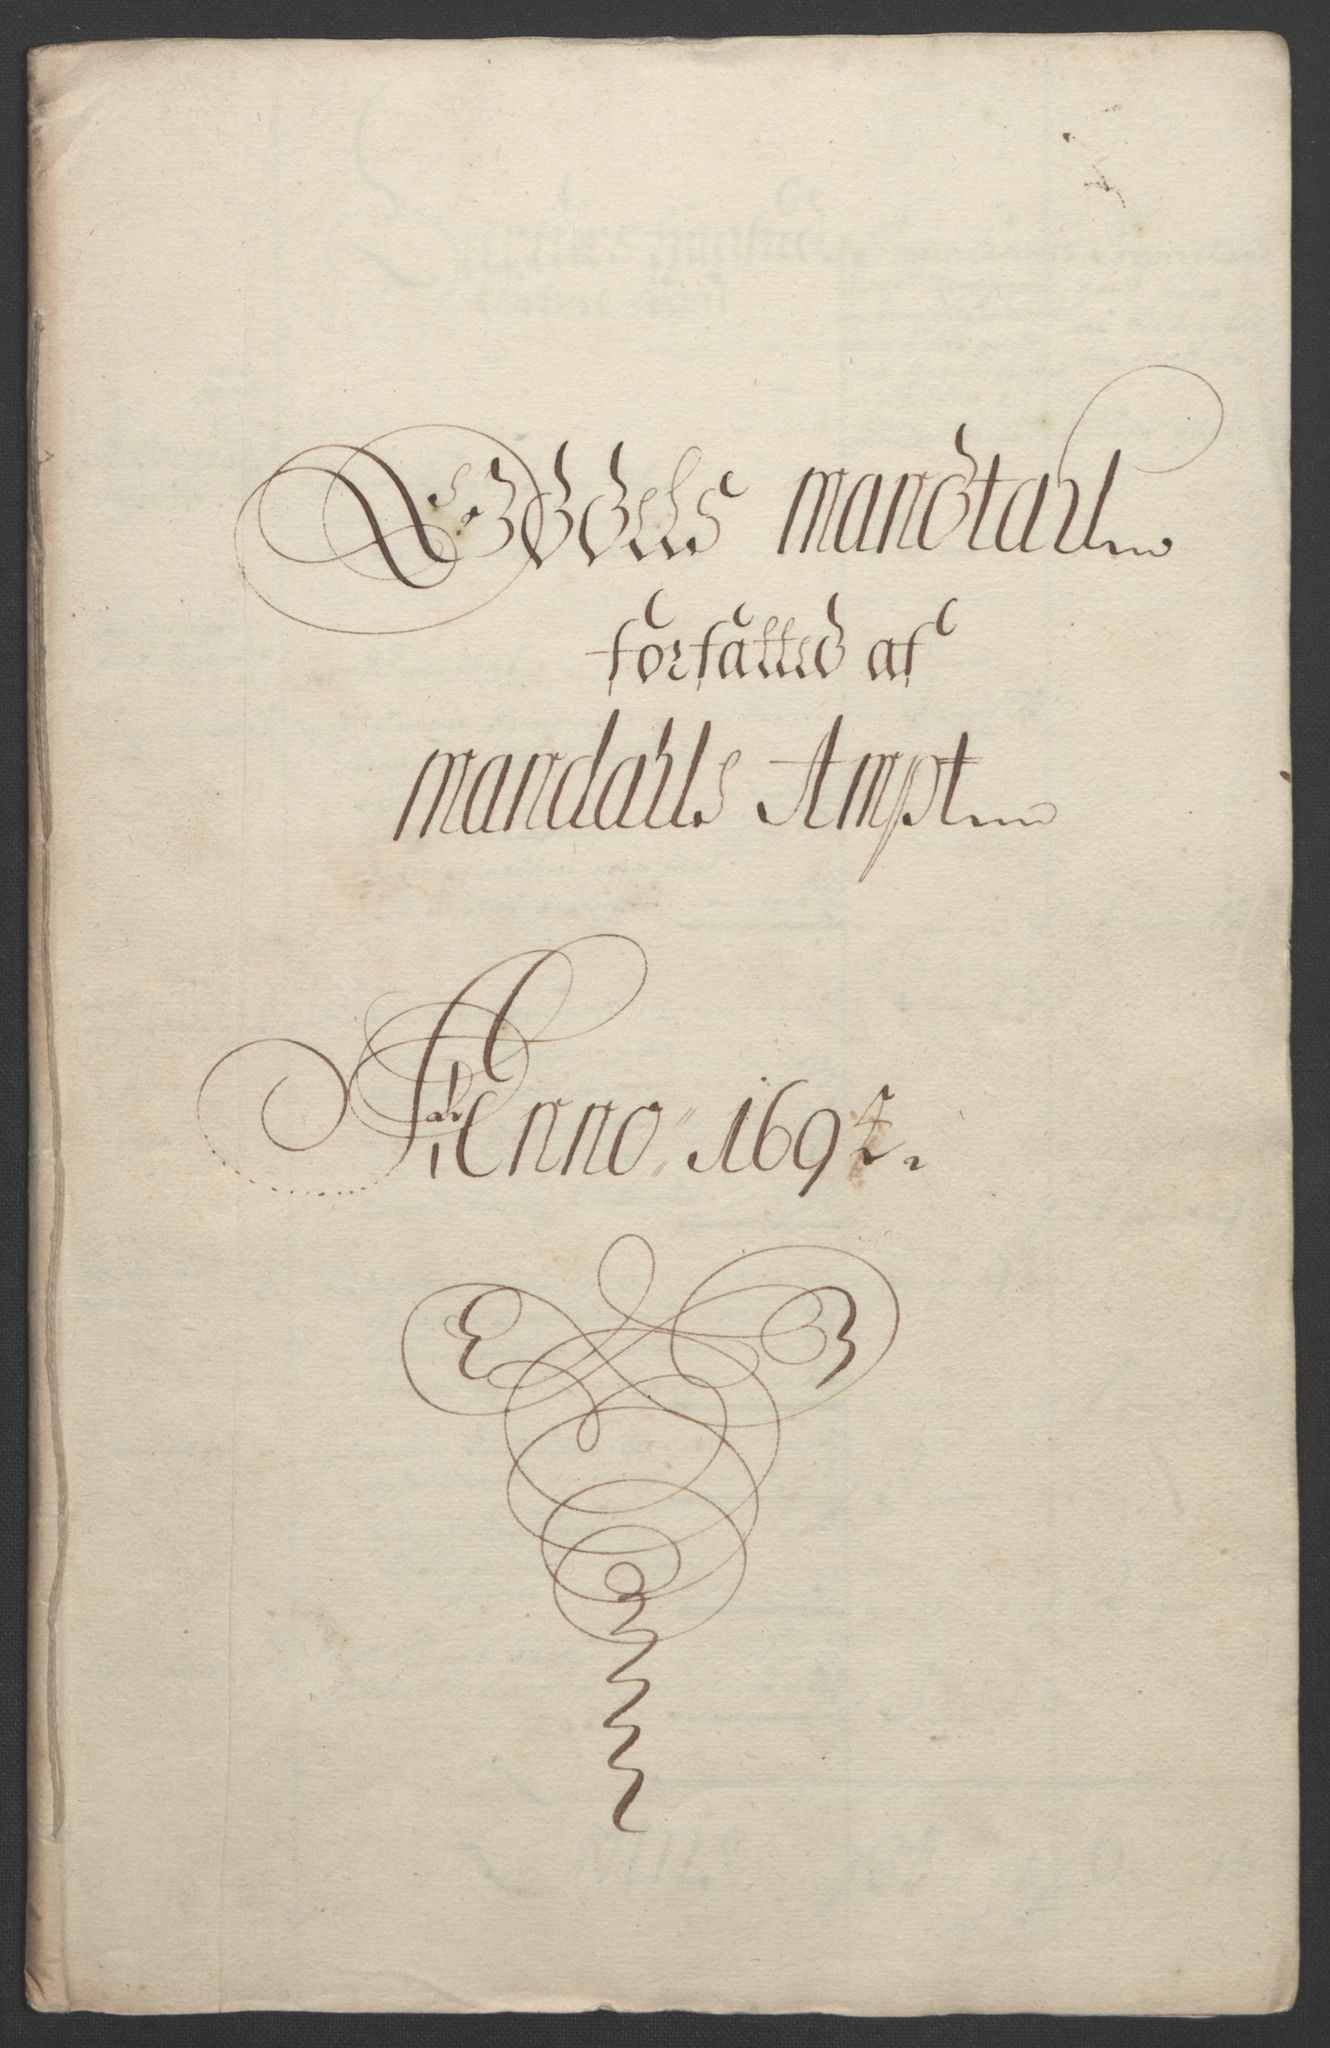 Odels mandtall
forfatted af
mandalls Ampt
Anno 1692.